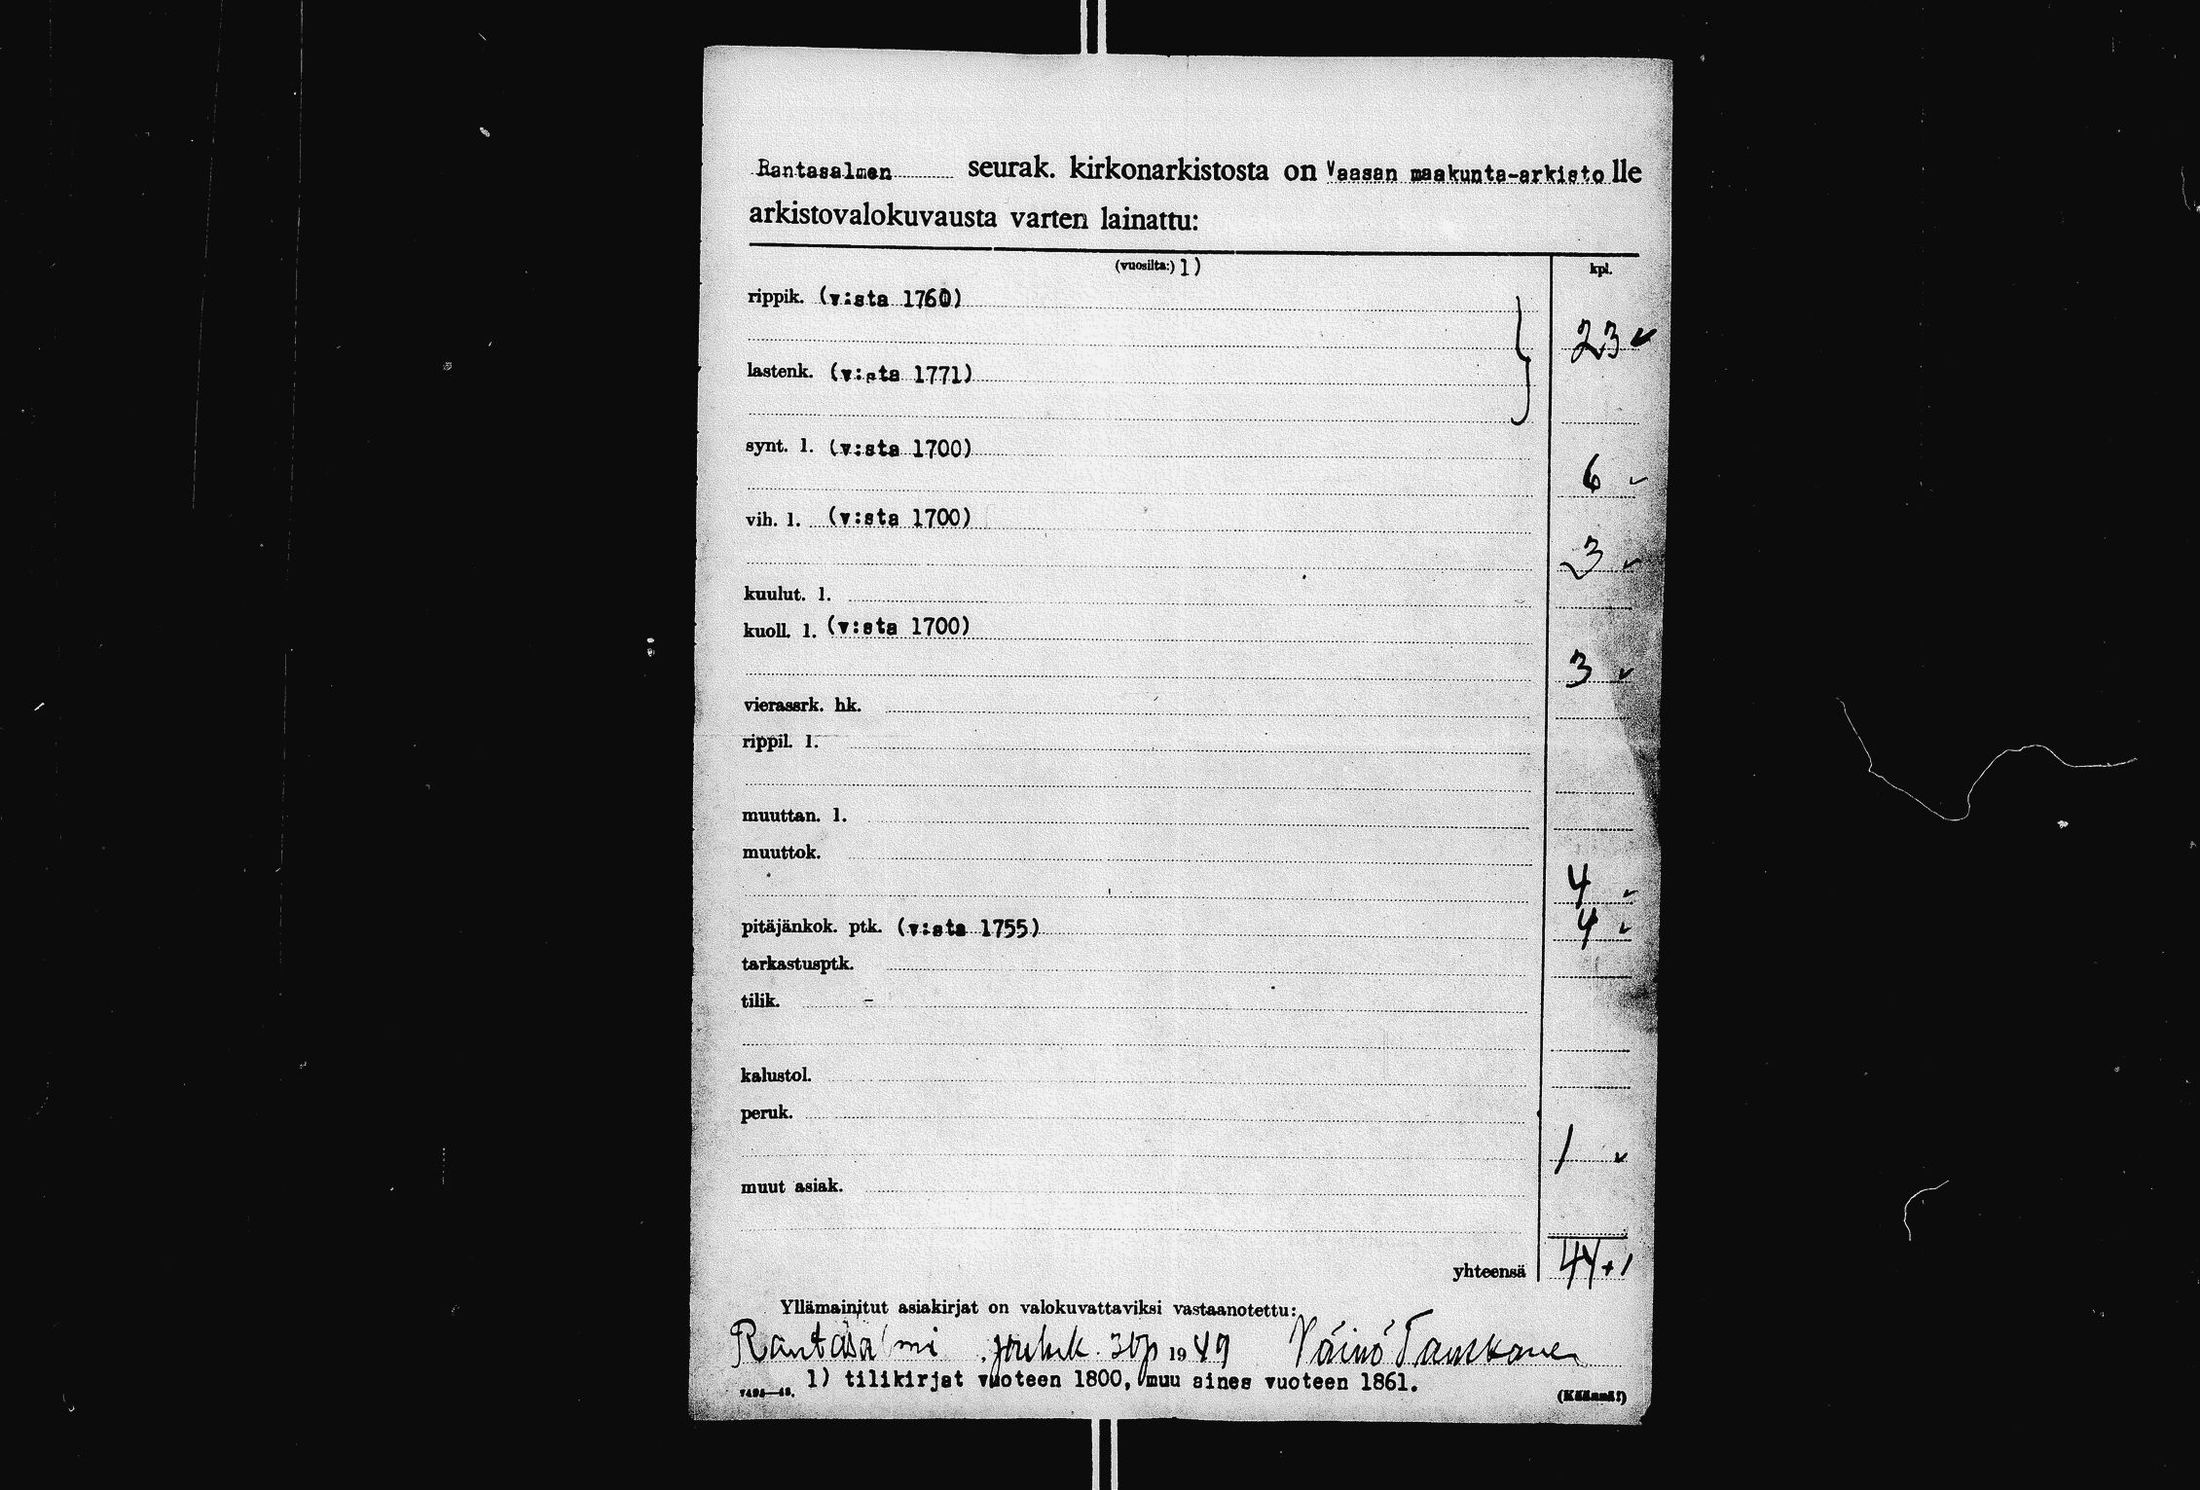 Rantasalmen seurak. kirkonarkistosta on Vaasan maakunta-arkisto lle
arkistovalokuvausta varten lainattu:
(vuosilta:) 1) kpl.
rippik. (v:sta 1760)
23
lastenk. (v:sta 1771)
synt. l. (v:sta 1700)
6
vih. l. (v:sta 1700)
3
kuulut. l.
kuoll. l. (v:sta 1700)
3
vierassrk. hk.
rippil. l.
muuttan. l.
muuttok.
4
pitäjänkok. ptk. (v:sta 1755) 4
tarkastusptk.
tilik. -
kalustol.
peruk.
1
muut asiak.
yhteensä 44+1
Yllämainitut asiakirjat on valokuvattaviksi vastaanotettu:
Rantasalmi jouluk. 30p 1949 Väinö Tanskanen
1) tilikirjat vuoteen 1800, muu aines vuoteen 1861.
(Käännä!)